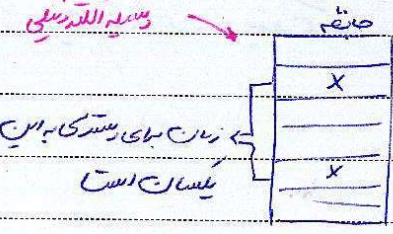 وسیله الکترونیکی
حافظه
X
زمان برای دسترسی به این
X
یکسان است